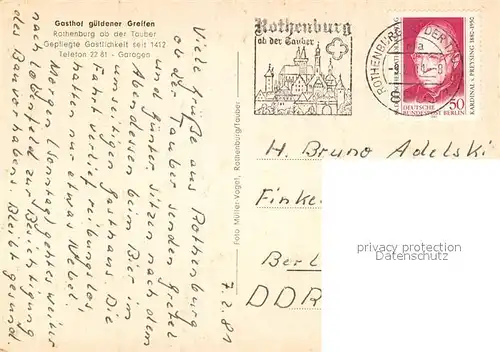 Gasthof güldener Greifen
Rothenburg ob der Tauber
Gepflegte Gastlichkeit seit 1412
Telefon 22 81 - Garagen
Viele Grüße aus Rothenburg
ob der Tauber senden Gretel
und Günter. Sitzen nach dem
Abendessen beim Bier im
umseitigen Gasthaus. Die
Fahrt verlief reibungslos,
hatten nur etwas Nebel!
Morgen (Sonntag) geht es weiter
nach zur Besichtigung
des Bauvorhabens. Bleibt gesund.
7.2.81
Foto Müller-Vogel, Rothenburg/Tauber
Rothenburg
ob der Tauber
ROTHENBURG OB DER
DEUTSCHE
BUNDESPOST BERLIN
50
KARDINAL v. PREYSING 1880-1950
H. Bruno Adelski
Finke
Berl
DDR
copyright protected
www.